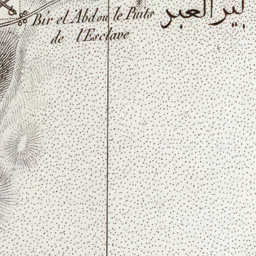 Bir el Abd ou le Puits
de l'Esclave
بير العبر